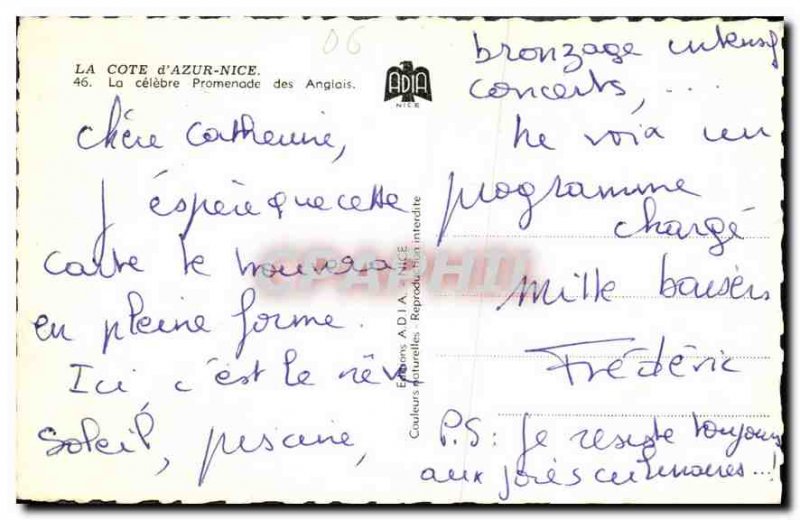 06
LA COTE d'AZUR-NICE.
46. La célèbre Promenade des Anglais.
ADIA
NICE
Chère Catherine,
J'éspère que cette
carte te trouvera
en pleine forme.
Ici, c'est le rêve
soleil, piscine,
Editions A.D.I.A. - NICE
Couleurs naturelles - Reproduction interdite
bronzage intensif
concerts, ...
me voici un
programme
chargé
Mille baisers
Frédéric
P.S: Je resiste toujours
aux joies culinaires...!
CPAPHIL